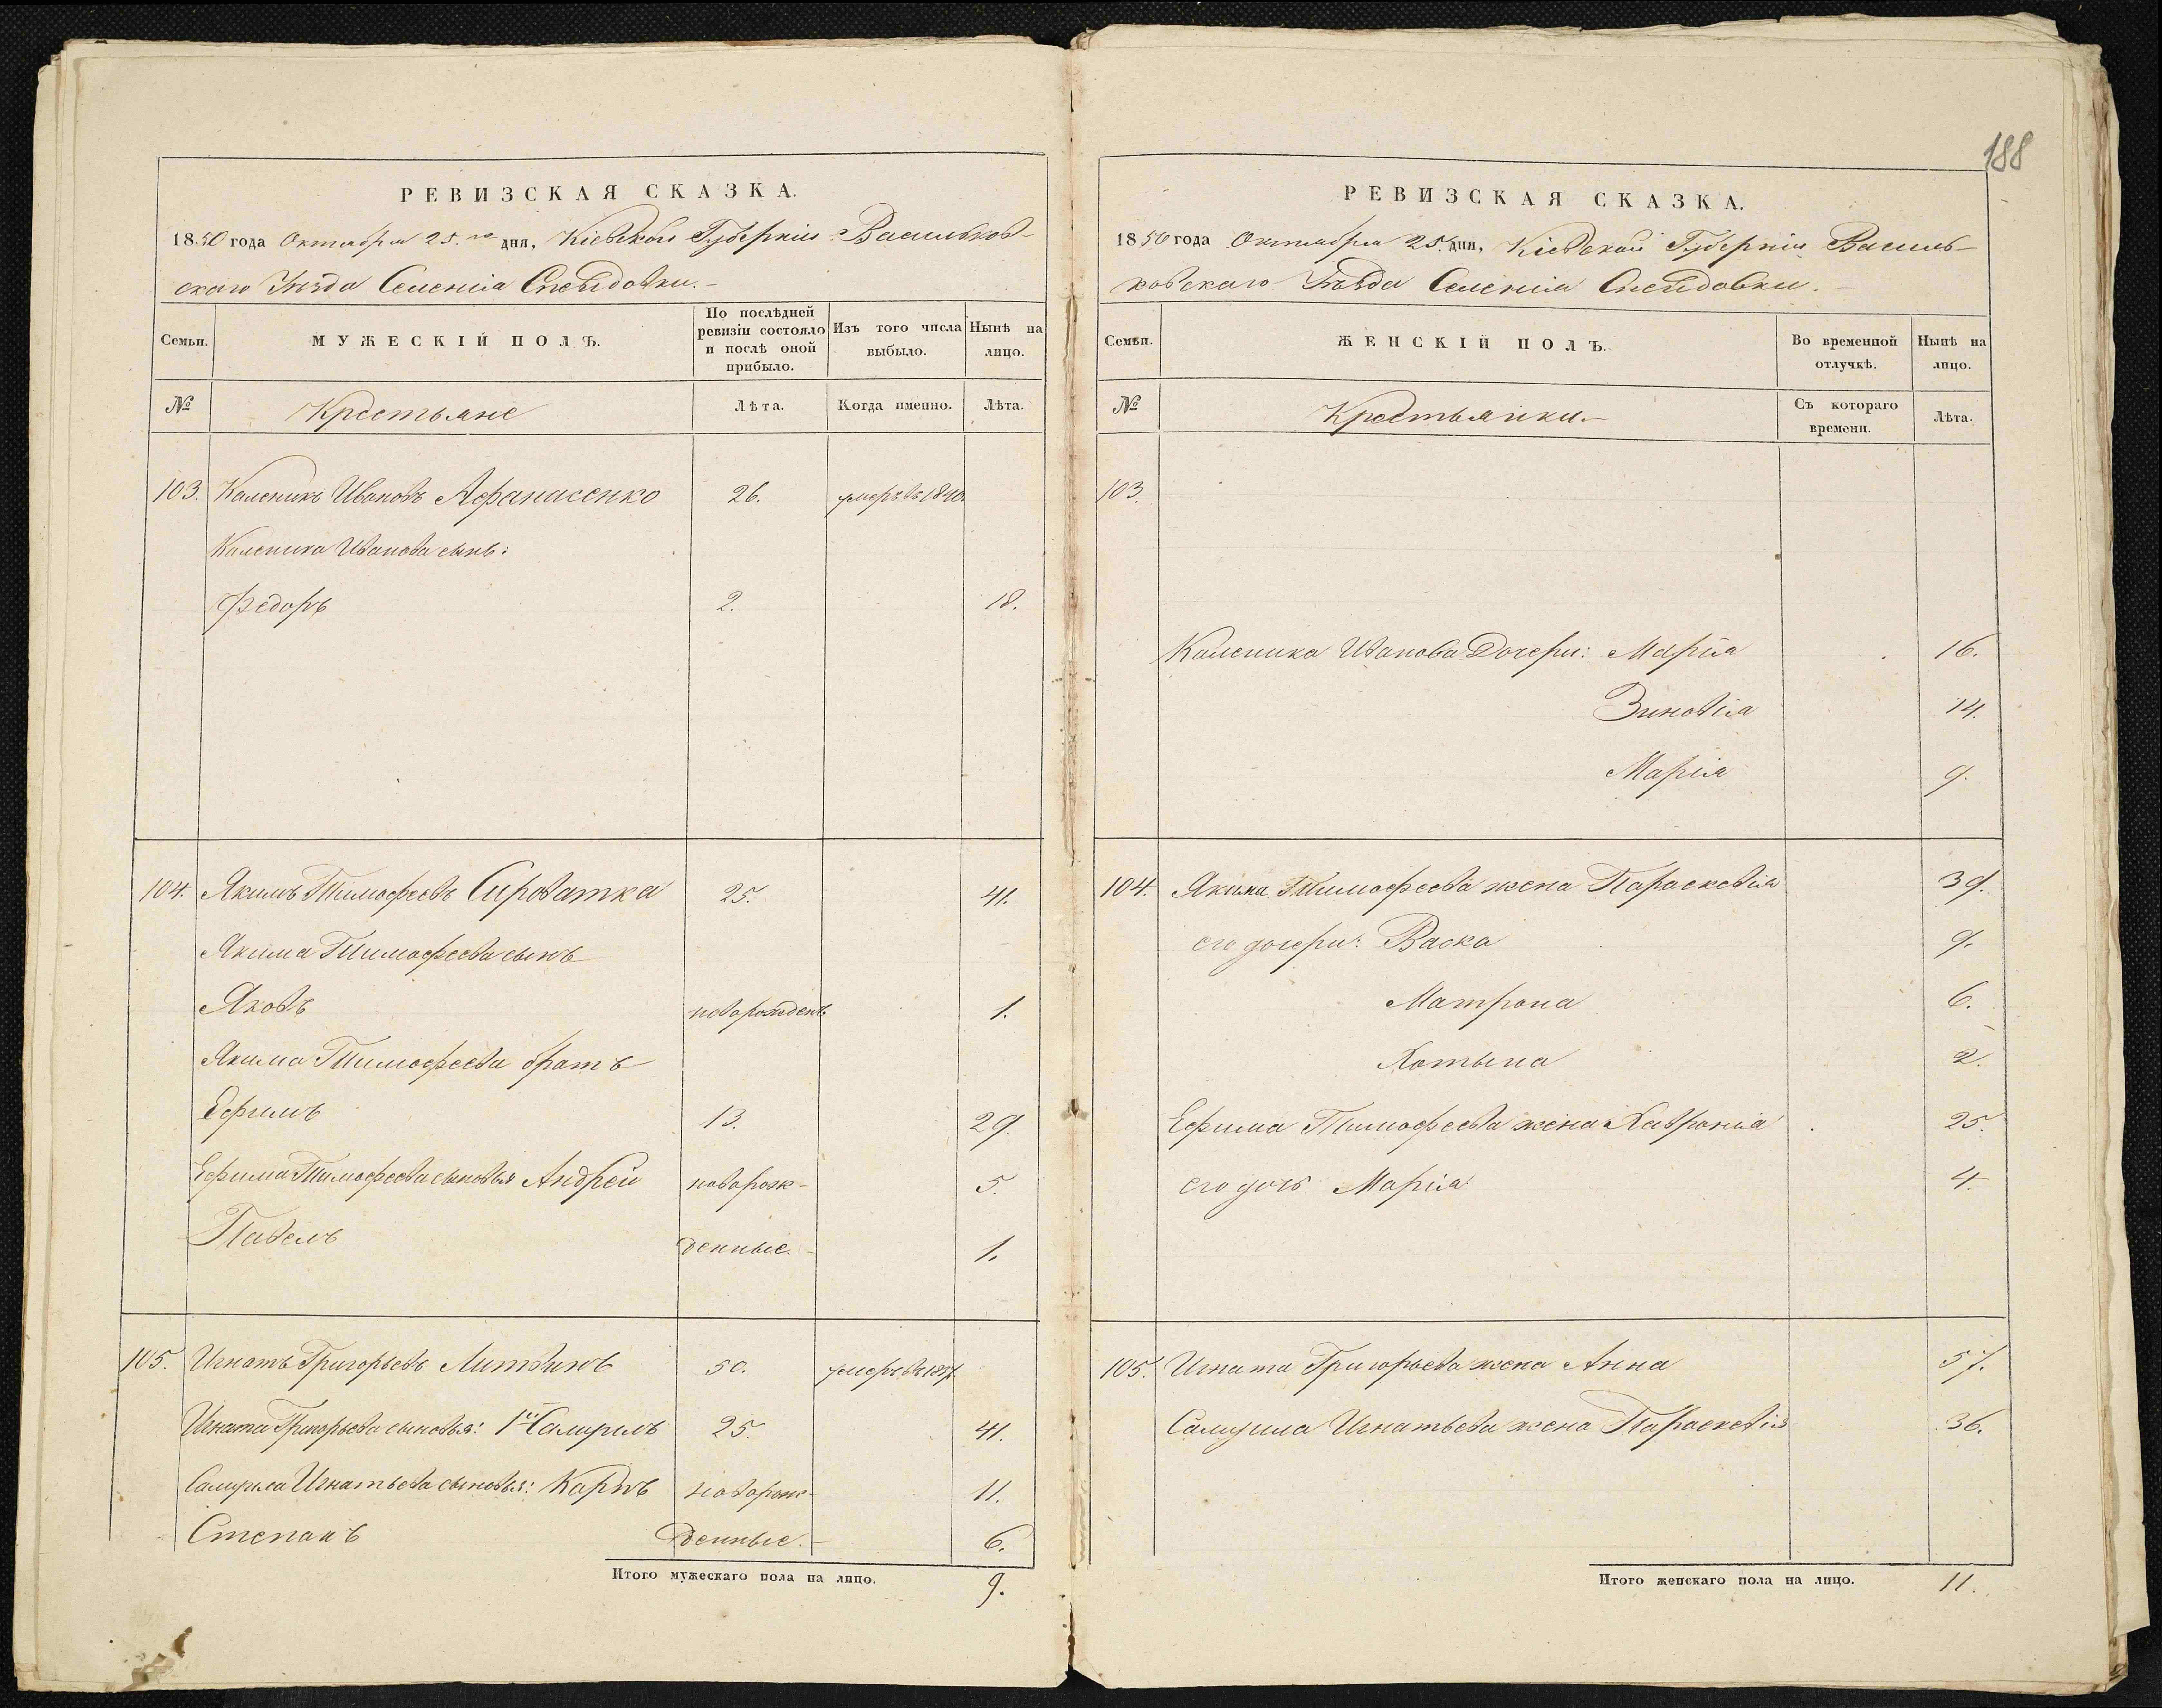 РЕВИЗСКАЯ СКАЗКА.
1850 года Октября 25.го дня, Кіевской Губерніи Васильков-
скаго Уѣзда Селенія
Семьи.
МУЖЕСКІЙ ПОЛЪ.
По послѣдней ревизіи состояло и послѣ оной прибыло.
Изъ того числа выбыло.
Нынѣ на лицо.
№
Крестьяне
Лѣта.
Когда именно.
Лѣта.
103. Каленикъ Ивановъ Афанасенко 26. умеръ въ 1840.
Каленика Иванова сынъ:
Федоръ 2. 18.
104. Якимъ Тимофеевъ Сироватка 25. 41.
Якима Тимофеева сынъ
Яковъ новорожденъ 1.
Якима Тимофеева братъ
Ефимъ 13. 29.
Ефима Тимофеева сыновья Андрей наворож- 5.
Павелъ денные. 1.
105. Игнатъ Григорьевъ Литвинъ 50. умеръ въ
Игната Григорьева сыновья: 1й Самуилъ 25. 41.
Самуила Игнатьева сыновья: Карпъ новорож- 11.
Степанъ денные. 6.
Итого мужескаго пола на лицо. 9.
188
РЕВИЗСКАЯ СКАЗКА.
1850 года Октября 25. дня, Кіевской Губерніи Василь-
ковскаго Уѣзда Селенія
Семьи.
ЖЕНСКІЙ ПОЛЪ.
Во временной отлучкѣ.
Нынѣ на лицо.
№
Крестьянки.
Съ котораго времени.
Лѣта.
103.
Каленика Иванова Дочери: Марія 16.
Зиновія 14.
Марія 9.
104. Якима Тимофеева жена Параскевія 39.
его дочери: Васка 9.
Матрона 6.
Хотына 2.
Ефима Тимофеева жена Хавронія 25.
его дочь Марія 4.
105. Игната Григорьева жена Анна 57.
Самуила Игнатьева жена Параскевія 36.
Итого женскаго пола на лицо. 11.